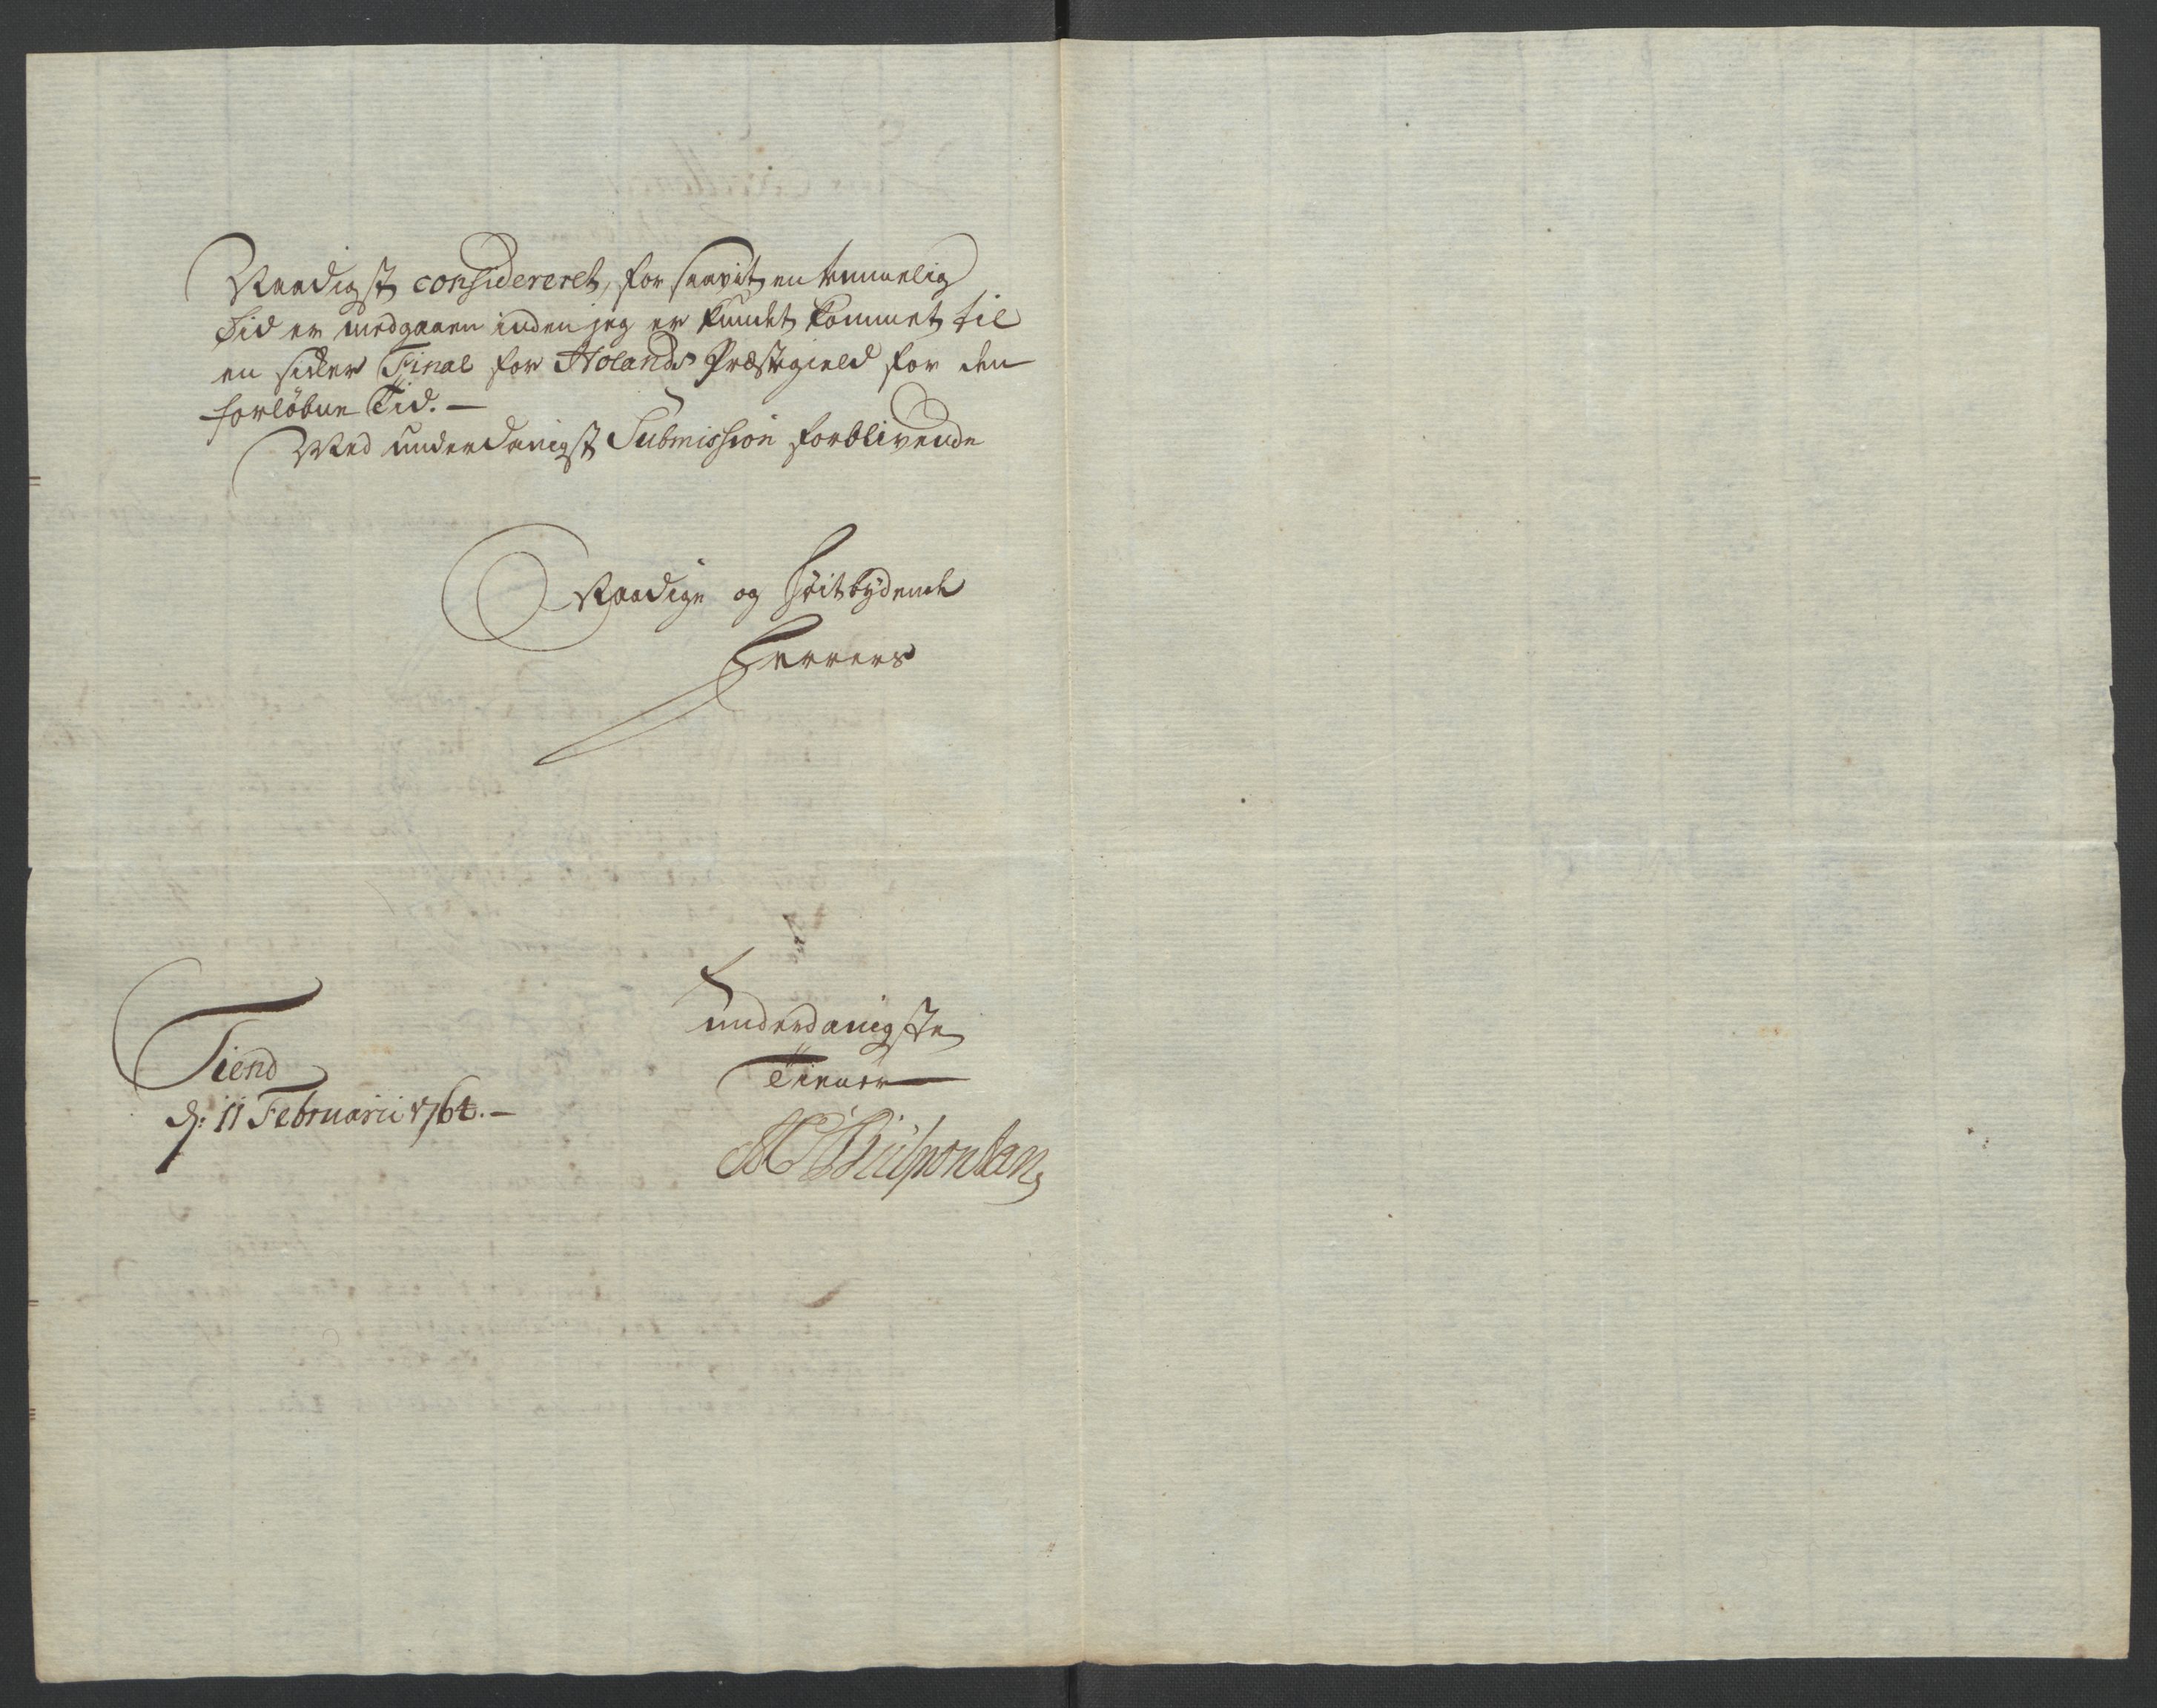 Naadigst considereret, for saavit en temmelig
Tid er medgaaen inden jeg er kundet kommet til
en sider Final for Hølands Præstegield for den
forløbne Tid. —
Med underdanigst Submission forblivende
Naadige og Høitbydende
Herrers
underdanigste
Tiener
Tiend
d: 11 Februarii 1764. —